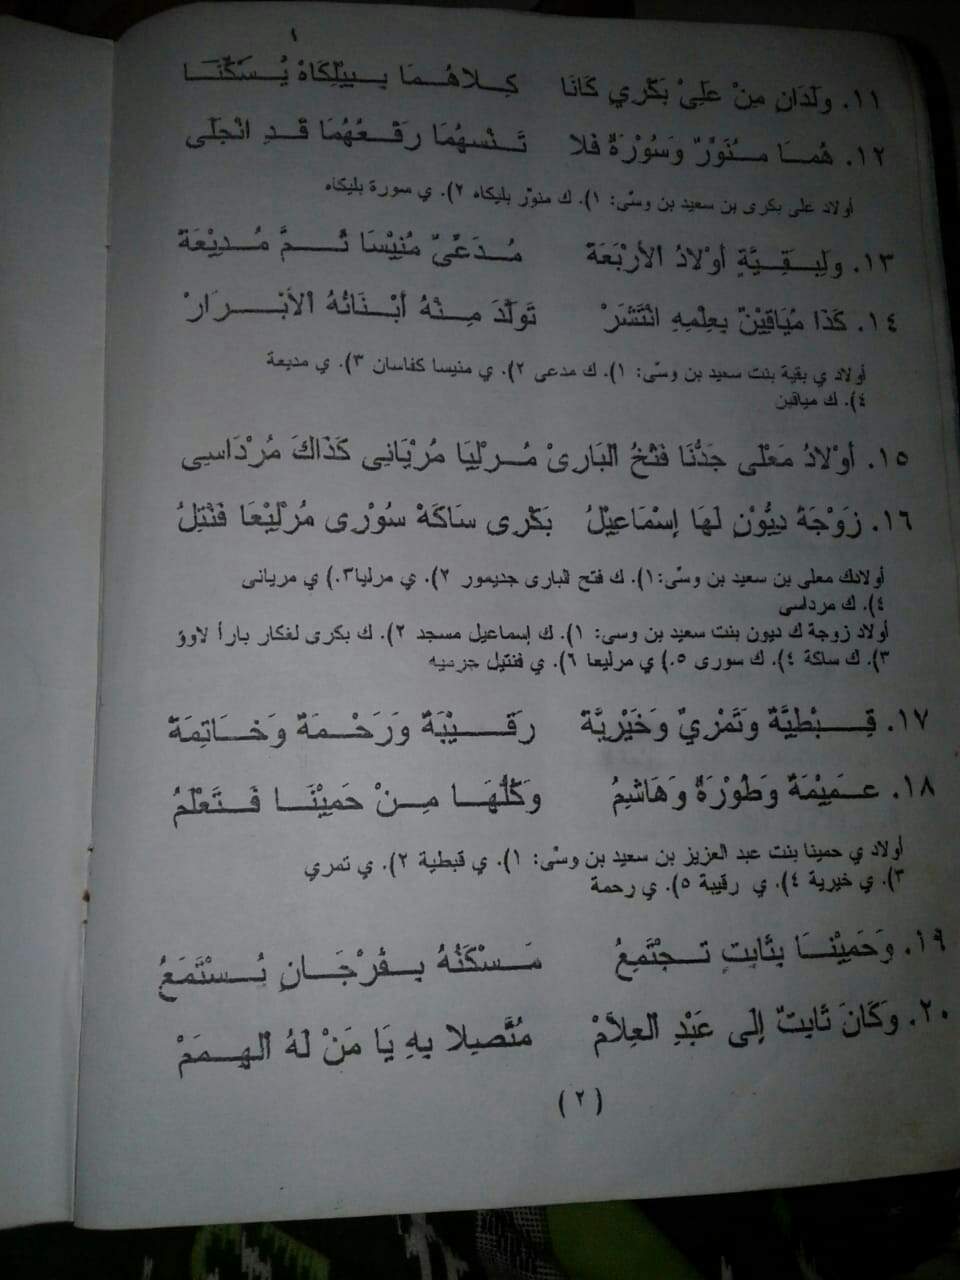 ١
١١. ولَدَانِ مِنْ عَلَىْ بَكْرِي كَانَا كِـلاهُـمَا بِـبِيْلِكَاهْ يُـسْكَنَـا
١٢. هُمَـا مـنَوَّرٌ وَسُوْرَةٌ فلا تَـنْسـهُمَا رَفْـعُهُمَا قَـدِ انْجَلَى
أولاد على بكرى بن سعيد بن وسّى: ١). ك منوّر بليكاه ٢). ي سورة بليكاه
١٣. ولِبَـقِـيَّةِ أوْلادُ الأرْبَعَةْ مُـدَعَّىْ مُنِيْسَا ثُـمَّ مُـدِيْعَةْ
١٤. كَذَا مُيَاقِيْنٌ بِعِلْمِهِ انْتَشَرْ تَوَلَّدَ مِـنْهُ أبْـنَائُهُ الأبْـرَارْ
أولاد ي بقية بنت سعيد بن وسّى: ١). ك مدعى ٢). ي منيسا كفاسان ٣). ي مديعة
٤). ك مياقين
١٥. أوْلادُ مَعْلَى جَدُّنَا فَتْحُ البَارِىْ مُـرْلِيَا مُرْيَانِى كَذَاكَ مُرْدَاسِى
١٦. زَوْجَةْ دِيُّوْنِ لَهَا إسْمَاعِيْلُ بَكْرِى سَاكَةْ سُوْرِى مُرْلِيْعَا فَنْتِلُ
أولادك معلى بن سعيد بن وسّى:١). ك فتح البارى جديمور ٢). ي مرليا٣.) ي مريانى
٤). ك مرداسى
أولاد زوجة ك ديون بنت سعيد بن وسى: ١). ك إسماعيل مسجد ٢). ك بكرى لفكار بارأ لاوؤ
٣). ك ساكة ٤). ك سورى ٥.) ي مرليعا ٦). ي فنتيل جرميه
١٧. قِـبْطِيَّةْ وَتَمْرِيْ وَخَيْرِيَّةْ رَقَـيْبَةْ وَرَحْـمَةْ وَخَـاتِمَةْ
١٨. عَـمِيْمَةْ وَطُوْرَةْ وَهَاشِمُ وَكُلُّهَـا مِـنْ حَمِيْنَـا فَـتَعْلَمُ
أولاد ي حمينا بنت عبد العزيز بن سعيد بن وسّى: ١). ي قبطية ٢). ي تمري
٣). ي خيرية ٤). ي رقيبة ٥). ي رحمة
١٩. وَحَمِيْنَـا بِثَابِتٍ تـجْتَمِعُ مَـسْكَنُهُ بـفُرْجَـانِ يُـسْتَمَعُ
٢٠. وَكَانَ ثَابِتٌ إلى عَبْدِ الْعِلاَّمْ مُتَّصِلا بِهِ يَا مَنْ لَهُ الْهِـمَمْ
(٢)